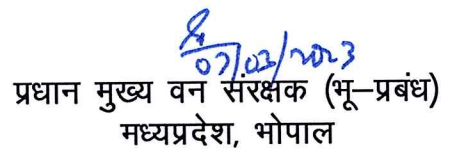 07/03/2023
प्रधान मुख्य वन संरक्षक (भू–प्रबंध)
मध्यप्रदेश, भोपाल